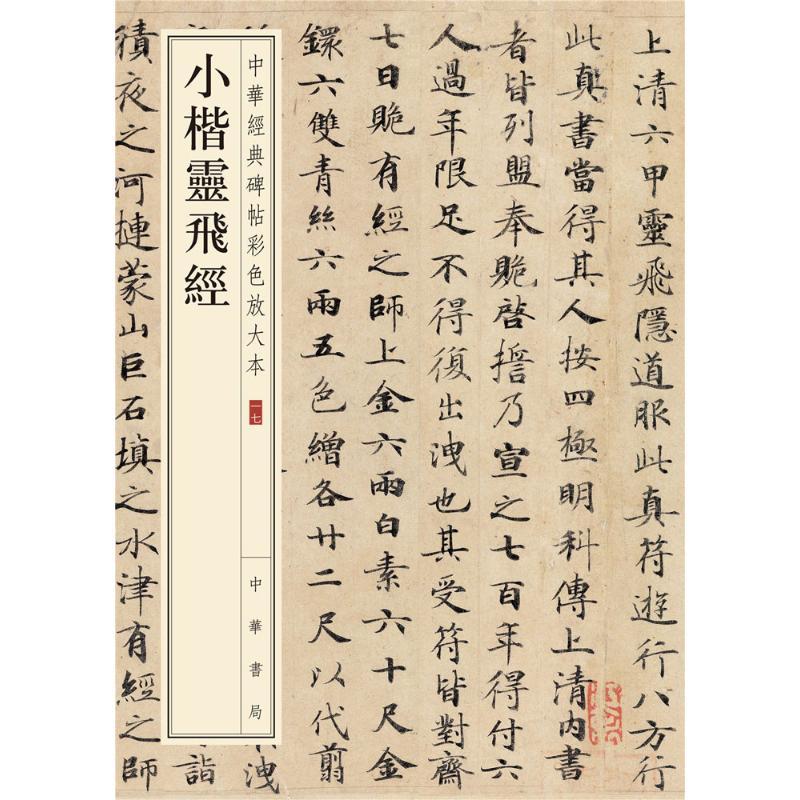 上清六甲靈飛隱道服此真符遊行八方行
此真書當得其人按四極明科傳上清內書
者皆列盟奉䞈啓誓乃宣之七百年得付六
人過年限足不得復出洩也其受符皆對齋
七日䞈有經之師上金六兩白素六十尺金
鐶六雙青絲六兩五色繒各廿二尺以代翦
洩
中華經典碑帖彩色放大本
一七
中華書局
小楷靈飛經
詣
積夜之河摙蒙山巨石填之水津有經之師